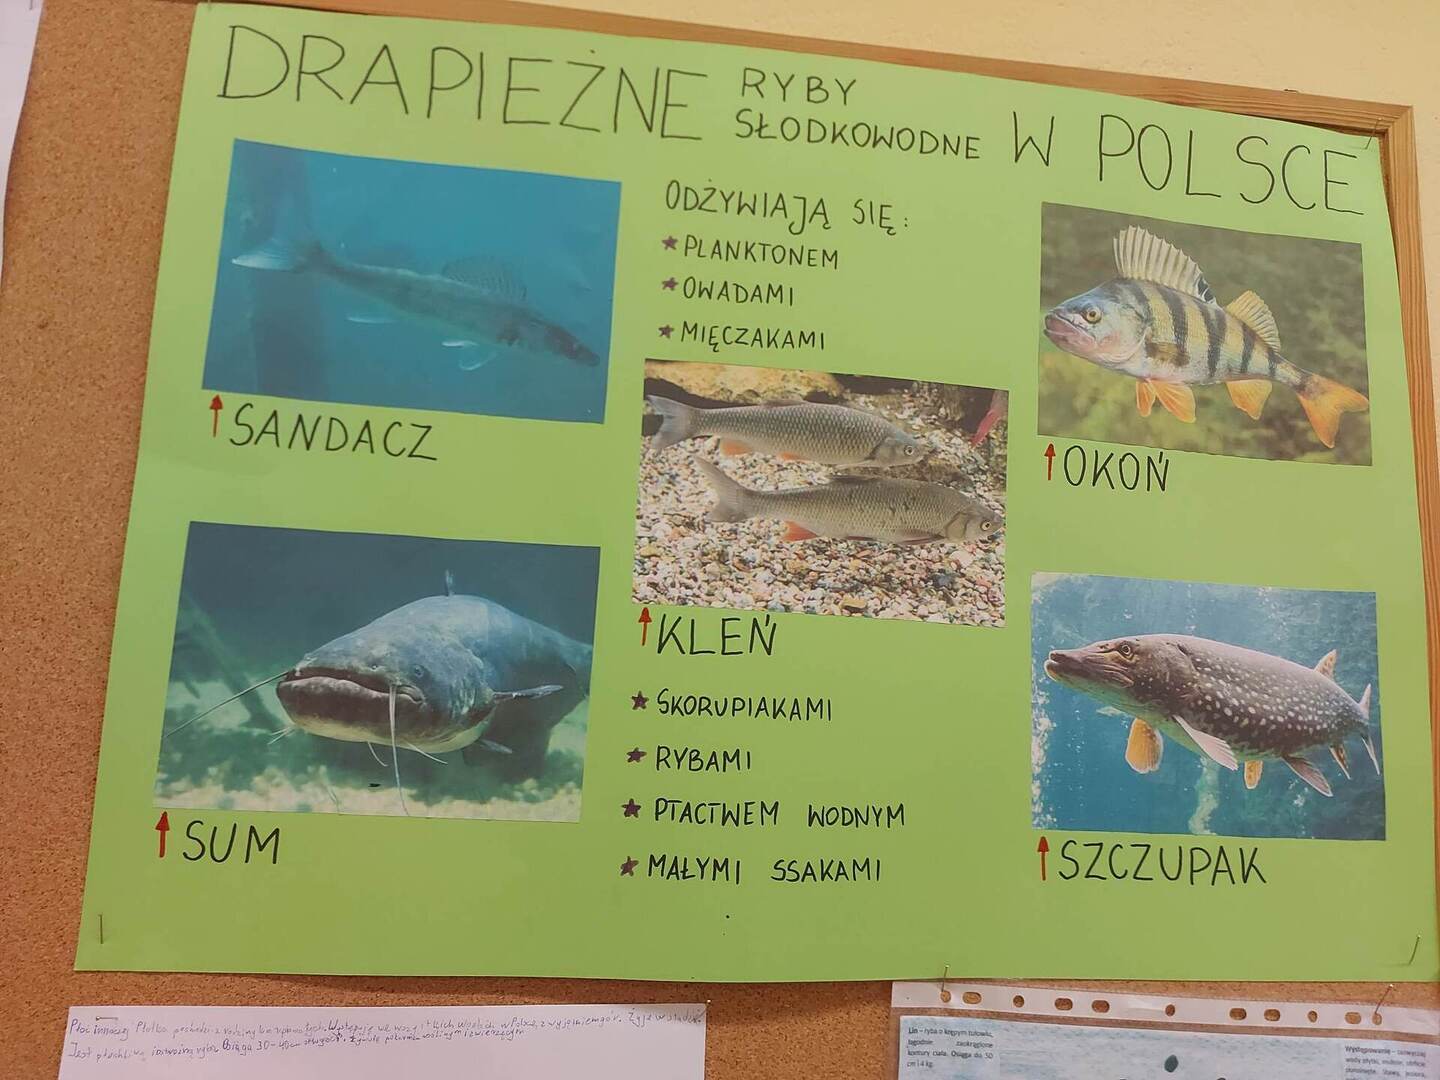 DRAPIEŻNE RYBY SŁODKOWODNE W POLSCE
ODŻYWIAJĄ SIĘ:
PLANKTONEM
OWADAMI
MIĘCZAKAMI
SANDACZ
OKOŃ
KLEŃ
SKORUPIAKAMI
RYBAMI
PTACTWEM WODNYM
MAŁYMI SSAKAMI
SUM
SZCZUPAK
Płoć inaczej Płotka pochodzi z rodziny karpiowatych. Występuje we wszystkich wodach w Polsce, z wyjątkiem gór. Żyje w stadach.
Jest płochliwą i ostrożną rybą. Osiąga 30-40cm długości. Żywi się pokarmem roślinnym i zwierzęcym
Lin – ryba o krępym tułowiu,
łagodnie zaokrąglone
kontury ciała. Osiąga do 50
cm i 4 kg.
Występowanie – zazwyczaj